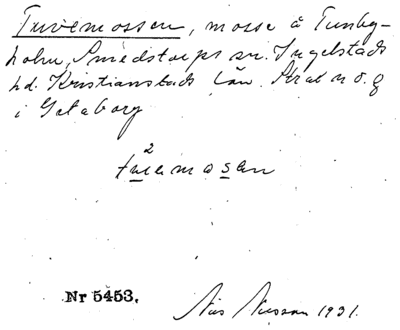 Tuvemossen, mosse å Tunby-
holm, Smedstorps sn. Ingelstads
hd. Kristianstads län. Strax n.o.g
i Gataborg
2
tuvemosen
Nr 5453.
Nils Nilsson 1931.